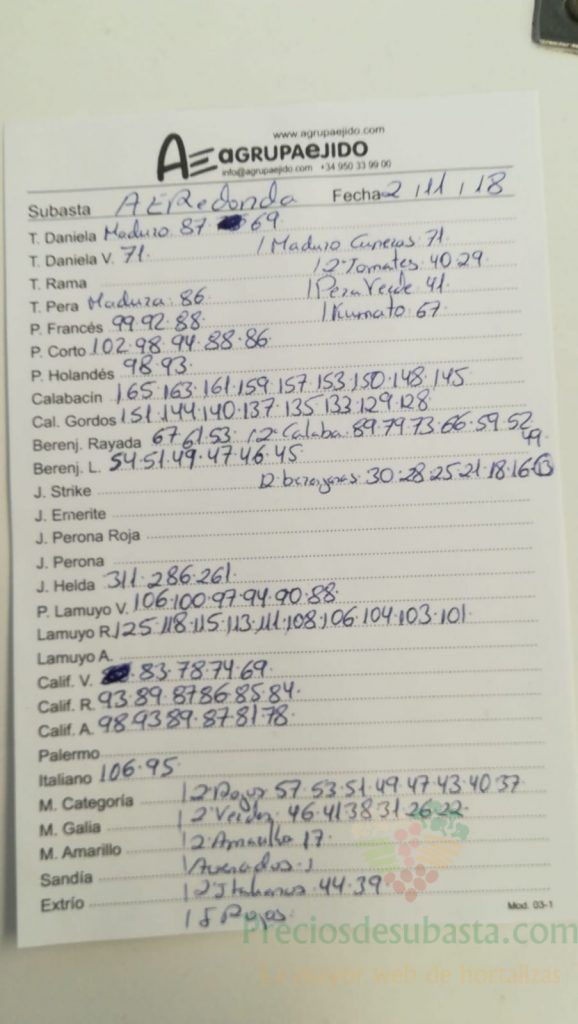 www.agrupaejido.com
AE AGRUPAEJIDO
info@agrupaejido.com +34 950 33 99 00
Subasta AERedonda Fecha 2/11/18
T. Daniela Maduro. 87 69
T. Daniela V. 71. / Maduro Cuneras 71
T. Rama / 2ª Tomates. 40 29
T. Pera Madura. 86 / Pera Verde 41
P. Francés 99.92.88 / Kumato 67
P. Corto 102.98.94.88.86
P. Holandés 98.93
Calabacín 165.163.161.159.157.153.150.148.145
Cal. Gordos 151.144.140.137.135.133.129.128
Berenj. Rayada 67 61 53. / 2ª Calaba. 89.79.73.66.59.52
49
Berenj. L. 54.51.49.47.46.45
J. Strike 12 berenjenas. 30.28.25.21.18.16.13
J. Emerite
J. Perona Roja
J. Perona
J. Helda 311.286.261.
P. Lamuyo V. 106.100.97.94.90.88
Lamuyo R. 125.118.115.113.111.108.106.104.103.101
Lamuyo A.
Calif. V. 83.78.74.69
Calif. R. 93.89.87 86.85.84
Calif. A. 98.93 89.87.81 78
Palermo
Italiano 106.95
M. Categoría / 2ª Rojos 57.53.51.49.47.43.40.37
M. Galia / 2ª Verdes. 46.41 38 31 26 22
M. Amarillo / 2ª Amarillo 17
Sandía
Extrío / 2 Italianos. 44.39
Rojos.
Mod. 03-1
Preciosdesubasta.com
La mayor web de hortalizas